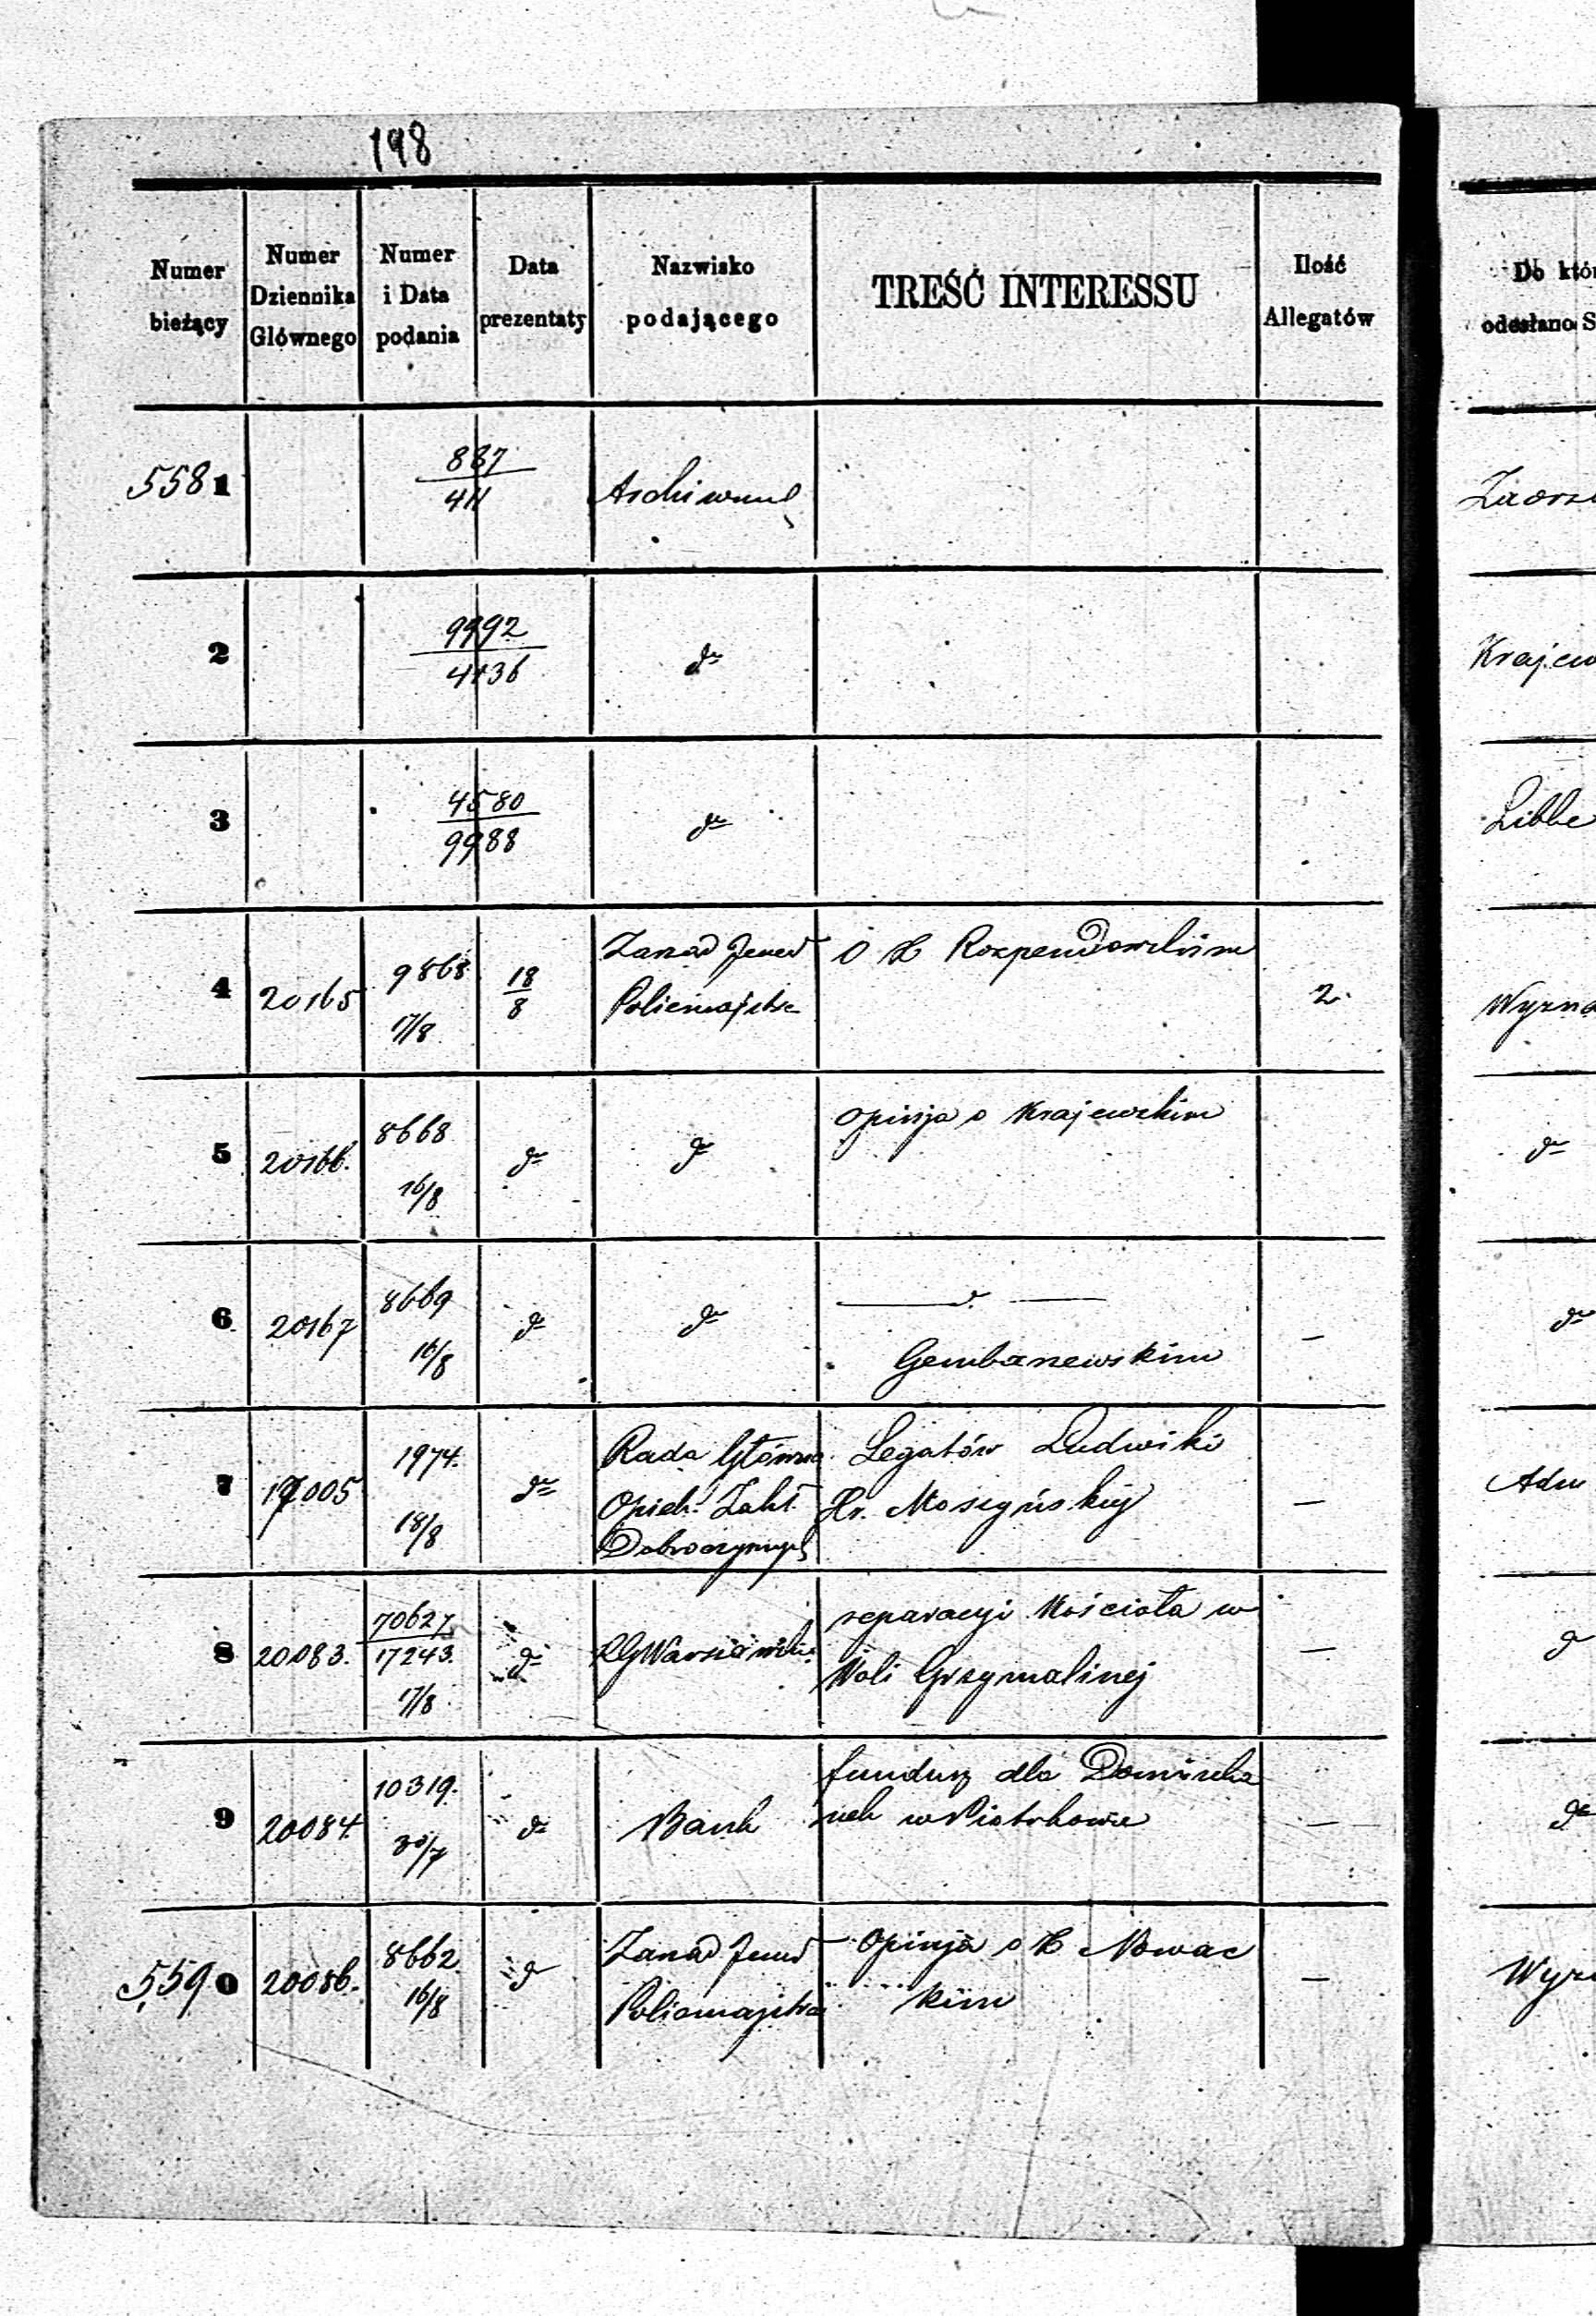 198
Numer bieżący
Numer Dziennika Głównego
Numer i Data podania
Data prezentaty
Nazwisko podającego
TREŚĆ INTERESSU
Ilość Allegatów
Do któr
odesłano S
5581
887
411
2
9992
4136
dto
Krajew
3
4580
9988
dto
Libbe
4
20165
9868
17/8
18/8
Zarząd Jener
Policmajstra
O X Rozpendowskim
2
Wyzna
5
20166.
8668
16/8
dto
dto
Opinja o Krajewskim
dto
6
20167
8669
16/8
dto
dto
d
Gembarzewskim
—
dto
7
19005
1974.
18/8
dto
Rada Główna
Opiek. Zakł.
Dobroczynnych
Legatów Ludwiki
Hr. Moszyńskiej
—
Adm
8
20083.
70627
17243.
17/8
dto
RGWarszawski
reparacyi Kościoła w
Woli Grzymalinej
—
d
9
20084.
10319.
30/7
dto
Bank
fundusz dla Dominika
nek w Piotrkowie
—
dto
5590
20086.
8662
16/8
d
Zarząd Jener
Policmajstra
Opinja o X Nowac
kim
—
Wyzn